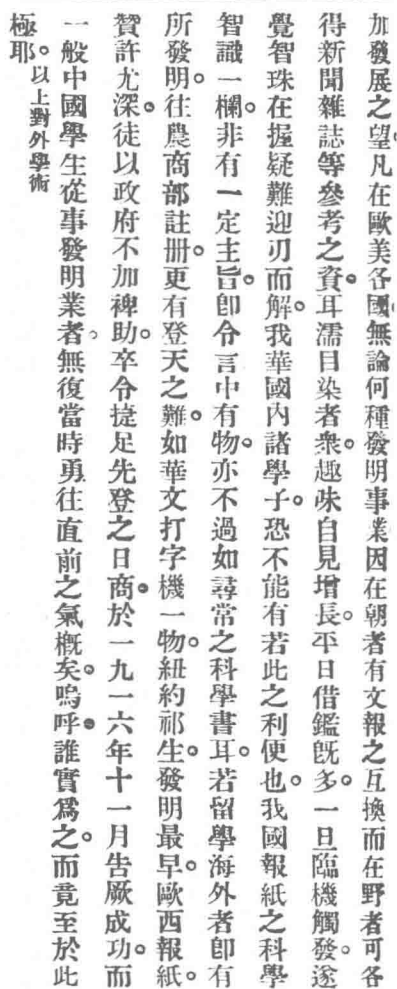 加發展之望。凡在歐美各國。無論何種發明事業因在朝者有文報之互換而在野者可各
得新聞雜誌等參考之資。耳濡目染者衆。趣味自見增長。平日借鑑旣多。一旦臨機觸發。遂
覺智珠在握疑難迎刃而解。我華國內諸學子。恐不能有若此之利便也。我國報紙之科學
智識一欄。非有一定主旨。卽令言中有物。亦不過如尋常之科學書耳。若留學海外者卽有
所發明。往農商部註册。更有登天之難。如華文打字機一物。紐約祁生。發明最早。歐西報紙。
贊許尤深。徒以政府不加裨助。卒令捷足先登之日商。於一九一六年十一月告厥成功。而
一般中國學生從事發明業者。無復當時勇往直前之氣槪矣。嗚呼。誰實爲之。而竟至於此
極耶。以上對外學術